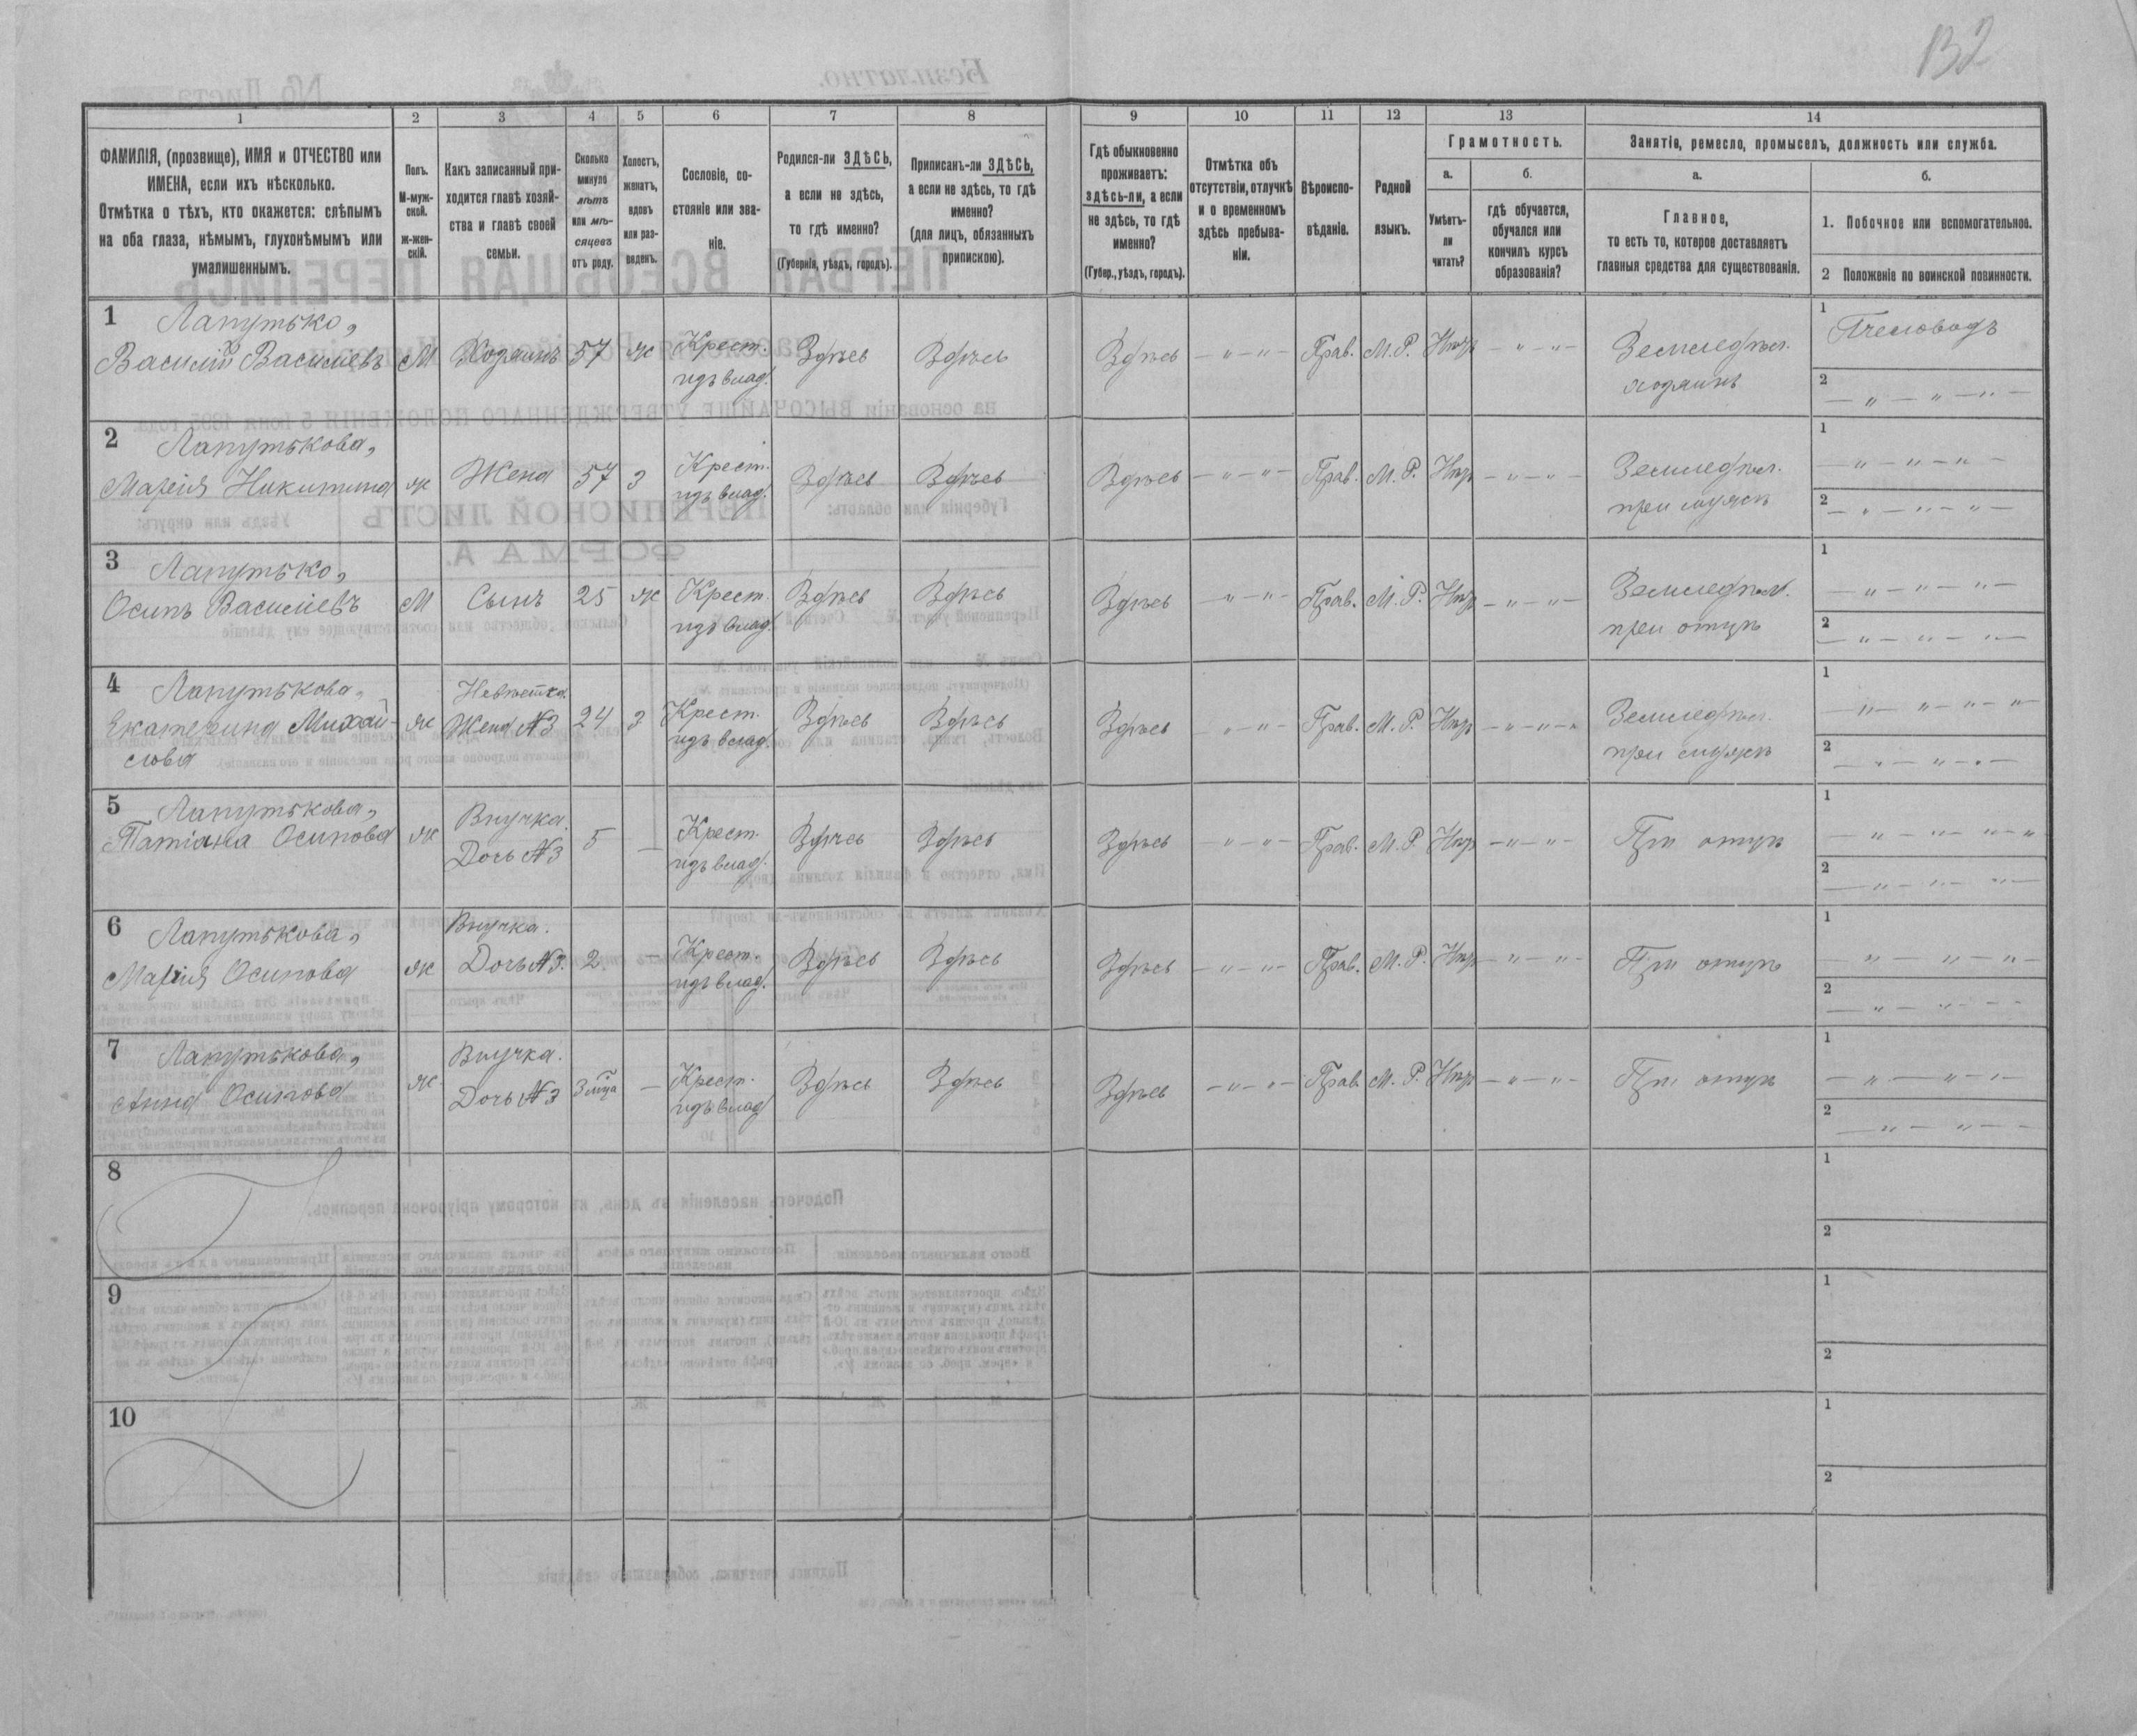 132
1
2
3
4
5
6
7
8
9
10
11
12
13
14
ФАМИЛІЯ, (прозвище), ИМЯ и ОТЧЕСТВО или
ИМЕНА, если ихъ нѣсколько.
Отмѣтка о тѣхъ, кто окажется: слѣпымъ
на оба глаза, нѣмымъ, глухонѣмымъ или
умалишеннымъ.
Полъ.
М-муж-
ской.
Ж-жен-
скій.
Какъ записанный при-
ходится главѣ хозяй-
ства и главѣ своей
семьи.
Сколько
минуло
лѣтъ
или мѣ-
сяцевъ
отъ роду.
Холостъ,
женатъ,
вдовъ
или раз-
веденъ.
Сословіе, со-
стояніе или зва-
ніе.
Родился-ли ЗДѢСЬ,
а если не здѣсь,
то гдѣ именно?
(Губернія, уѣздъ, городъ).
Приписанъ-ли ЗДѢСЬ,
а если не здѣсь, то гдѣ
именно?
(для лицъ, обязанныхъ
припискою).
Гдѣ обыкновенно
проживаетъ:
здѣсь-ли, а если
не здѣсь, то гдѣ
именно?
(Губер., уѣздъ, городъ).
Отмѣтка объ
отсутствіи, отлучкѣ
и о временномъ
здѣсь пребыва-
ніи.
Вѣроиспо-
вѣданіе.
Родной
языкъ.
Грамотность.
а.
Умѣетъ-
ли
читать?
б.
гдѣ обучается,
обучался или
кончилъ курсъ
образованія?
Занятіе, ремесло, промыселъ, должность или служба.
а.
Главное,
то есть то, которое доставляетъ
главныя средства для существованія.
б.
1. Побочное или вспомогательное.
2 Положеніе по воинской повинности.
1 Лапутько,
Василій Васильевъ М Хозяинъ 57 ж Крест.
изъ влад. Здѣсь Здѣсь Здѣсь — „ — „ — Прав. М. Р. Нѣтъ — „ — „ — Земледѣл.
хозяинъ
1 Пчеловодъ
2 — „ — „ — „ —
2 Лапутькова,
Марія Никитина ж Жена 57 з Крест.
изъ влад. Здѣсь Здѣсь Здѣсь — „ — „ — Прав. М. Р. Нѣтъ — „ — „ — Земледѣл.
при мужѣ
1 — „ — „ — „ —
2 — „ — „ — „ —
3 Лапутько,
Осипъ Васильевъ М Сынъ 25 ж Крест.
изъ влад. Здѣсь Здѣсь Здѣсь — „ — „ — Прав. М. Р. Нѣтъ — „ — „ — Земледѣл.
при отцѣ
1 — „ — „ — „ —
2 — „ — „ — „ —
4 Лапутькова,
Екатерина Михай-
лова ж Невѣстка.
Жена №3 24 з Крест.
изъ влад. Здѣсь Здѣсь Здѣсь „ — „ — Прав. М. Р. Нѣтъ — „ — „ — Земледѣл.
при мужѣ
1 — „ — „ — „ — „
2 — „ — „ — „ —
5 Лапутькова,
Татіана Осипова ж Внучка.
Дочь №3 5 — Крест.
изъ влад. Здѣсь Здѣсь Здѣсь — „ — „ — Прав. М. Р. Нѣтъ — „ — „ — При отцѣ
1 — „ — „ — „ — „
2 — „ — „ — „ —
6 Лапутькова,
Марія Осипова ж Внучка.
Дочь №3. 2 — Крест.
изъ влад. Здѣсь Здѣсь Здѣсь — „ — „ — Прав. М. Р. Нѣтъ — „ — „ — При отцѣ
1 — „ — „ — „ —
2 — „ — „ — „ —
7 Лапутькова,
Анна Осипова ж Внучка.
Дочь №3 3 мца — Крест.
изъ влад. Здѣсь Здѣсь Здѣсь — „ — „ — Прав. М. Р. Нѣтъ — „ — „ — При отцѣ
1 — „ — „ — „ —
2 — „ — „ — —
8
1
2
9
1
2
10
1
2